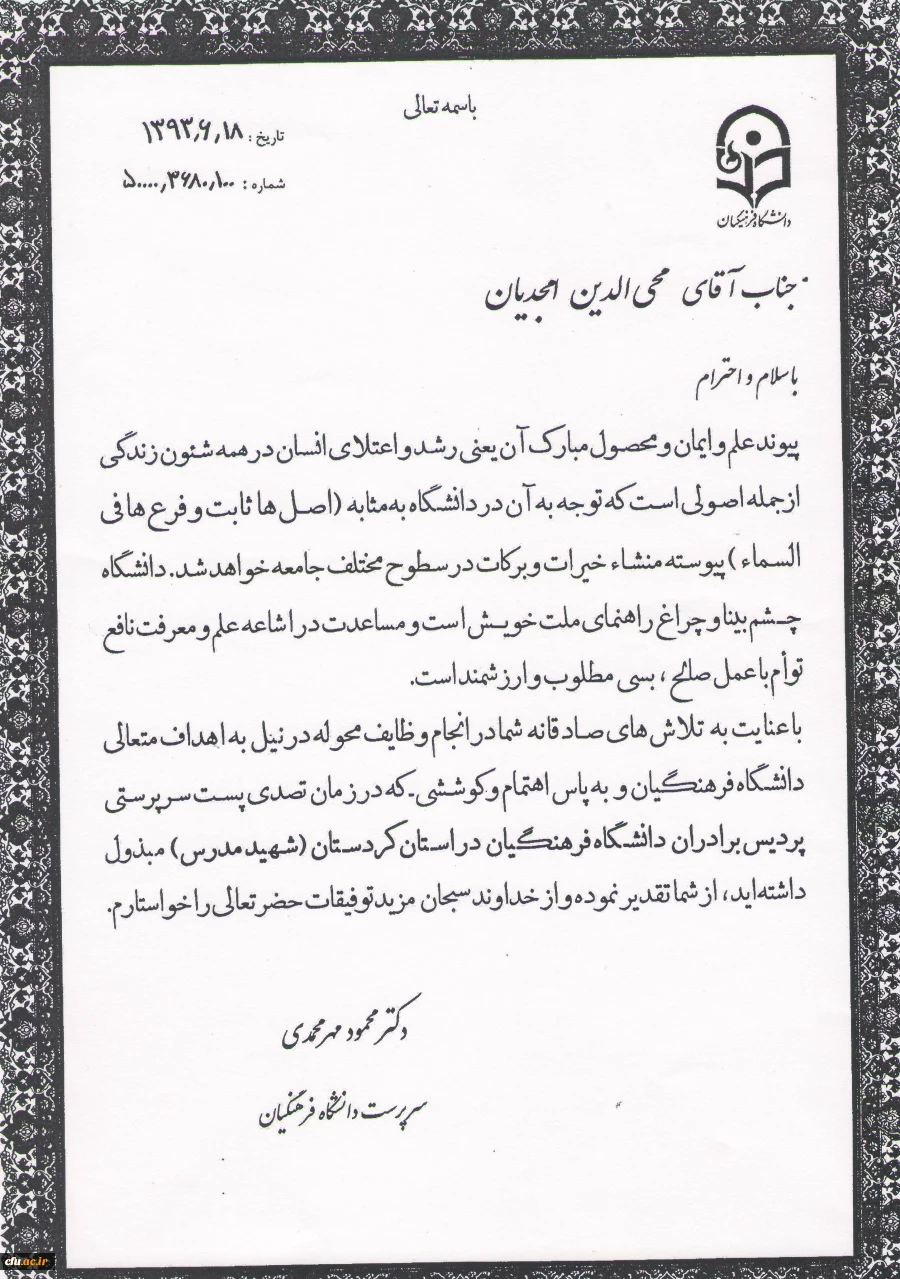 باسمه تعالی
تاریخ : ۱۳۹۳٫۶٫۱۸
شماره : ۵۰۰۰۰٫۳۶۸۰٫۱۰۰
دانشگاه فرهنگیان
جناب آقای محی الدین امجدیان
با سلام و احترام
پیوند علم و ایمان و محصول مبارک آن یعنی رشد و اعتلای انسان در همه شئون زندگی
از جمله اصولی است که توجه به آن در دانشگاه به مثابه (اصل ها ثابت و فرع ها فی
السماء) پیوسته منشاء خیرات و برکات در سطوح مختلف جامعه خواهد شد. دانشگاه
چشم بینا و چراغ راهنمای ملت خویش است و مساعدت در اشاعه علم و معرفت نافع
توأم با عمل صالح ، بسی مطلوب و ارزشمند است.
با عنایت به تلاش های صادقانه شما در انجام وظایف محوله در نیل به اهداف متعالی
دانشگاه فرهنگیان و به پاس اهتمام و کوششی ـ که در زمان تصدی پست سرپرستی
پردیس برادران دانشگاه فرهنگیان در استان کردستان (شهید مدرس) مبذول
داشته اید، از شما تقدیر نموده و از خداوند سبحان مزید توفیقات حضر تعالی را خواستارم.
دکتر محمود مهرمحمدی
سرپرست دانشگاه فرهنگیان
cfu.ac.ir